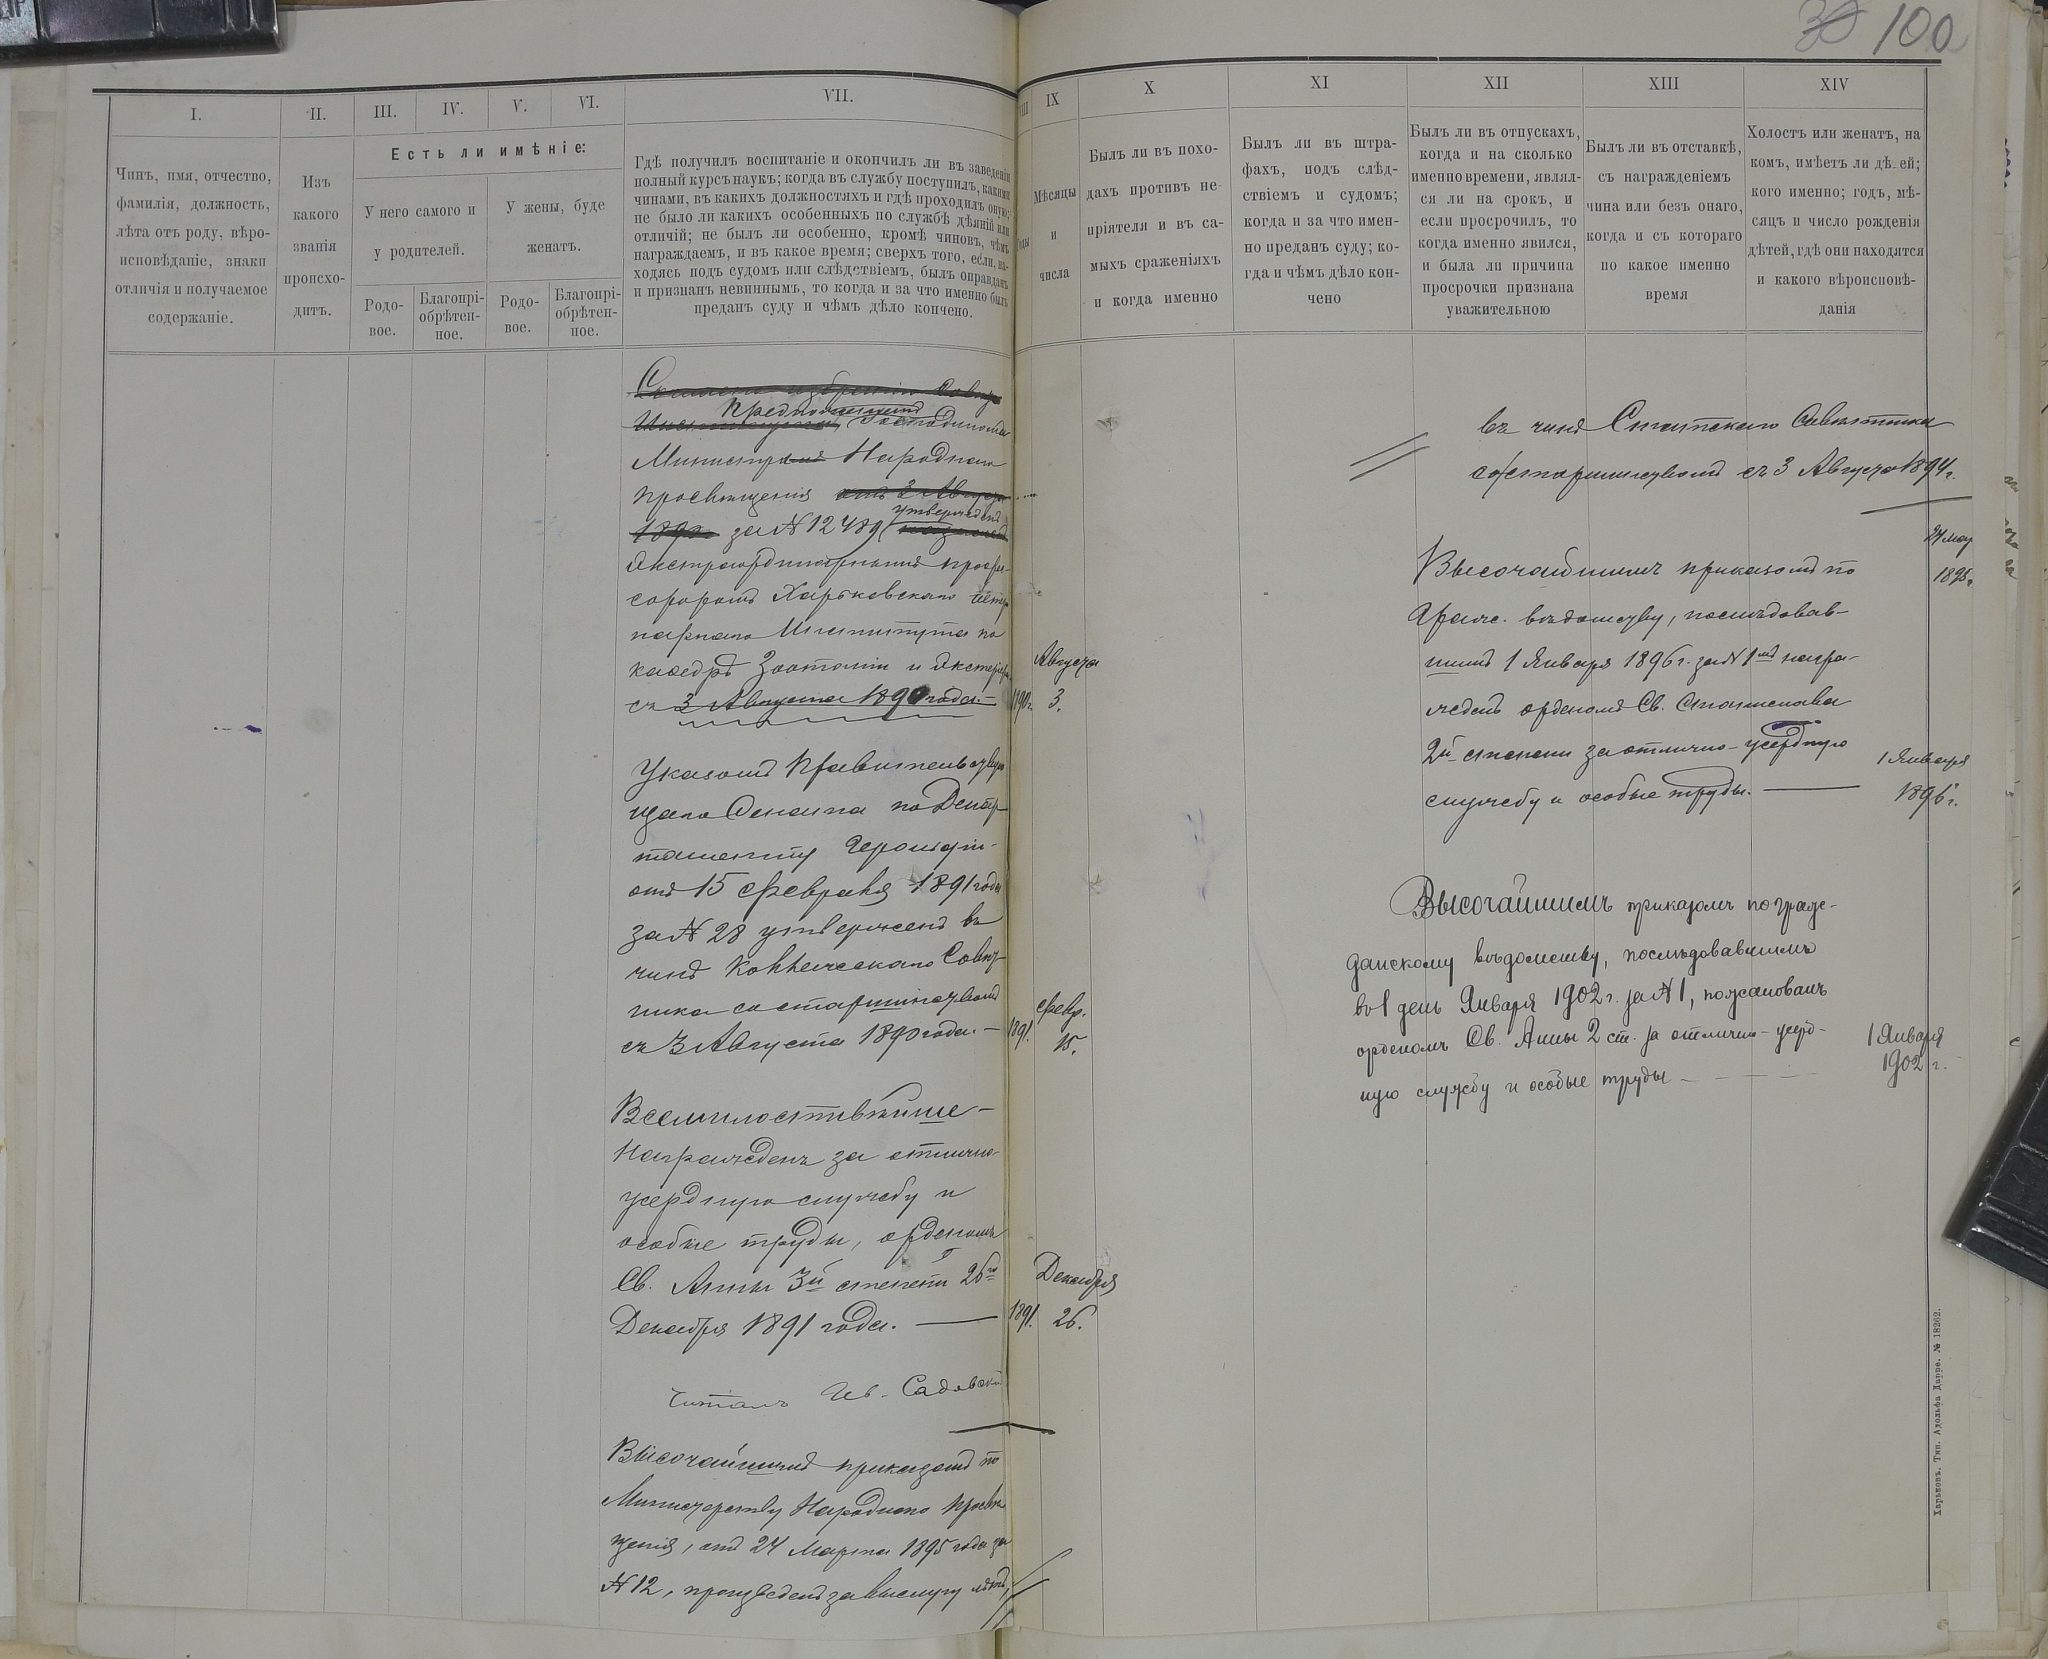 30 100
I.
II.
III.
IV.
V.
VI.
VII.
Чинъ, имя, отчество,
фамилія, должность,
лѣта отъ роду, вѣро-
исповѣданіе, знаки
отличія и получаемое
содержаніе.
Изъ
какого
званія
происхо-
дитъ.
Есть ли имѣніе:
У него самого и
у родителей.
У жены, буде
женатъ.
Родо-
вое.
Благопрі-
обрѣтен-
ное.
Родо-
вое.
Благопрі-
обрѣтен-
ное.
Гдѣ получилъ воспитаніе и окончилъ ли въ заведеніи
полный курсъ наукъ; когда въ службу поступилъ, какими
чинами, въ какихъ должностяхъ и гдѣ проходилъ оную;
не было ли какихъ особенныхъ по службѣ дѣяній или
отличій; не былъ ли особенно, кромѣ чиновъ, чѣмъ
награждаемъ, и въ какое время; сверхъ того, если, на-
ходясь подъ судомъ или слѣдствіемъ, былъ оправданъ
и признанъ невиннымъ, то когда и за что именно былъ
преданъ суду и чѣмъ дѣло кончено.
Предложеніемъ
Господина
Министра Народнаго
просвѣщенія отъ 3 Августа
1890 за № 12489 утвержденъ
Экстраординарнымъ профес-
соромъ Харьковскаго Ветери
нарнаго Института по
каѳедрѣ Зоотоміи и Экстерьера
съ 3 Августа 1890 года.—
1890 г.
Августа
3.
Указомъ Правительствую
щаго Сената по Депар-
таменту Герольдіи
отъ 15 Февраля 1891 года
за № 28 утвержденъ въ
чинѣ Коллежскаго Совѣт-
ника со старшинствомъ
съ 3 Августа 1890 года.—
1891.
Февр.
15.
Всемилостивѣйше
награжденъ за отлично-
усердную службу и
особые труды, орденомъ
Св. Анны 3й степени 26го
Декабря 1891 года. —
1891.
Декабря
26.
Читалъ Ив. Садовскій
Высочайшимъ приказомъ по
Министерству Народнаго Просвѣ
щенія, отъ 24 Марта 1895 года за
№ 12, произведенъ за выслугу лѣтъ,
VIII
IX
X
XI
XII
XIII
XIV
Годы
Мѣсяцы
и
числа
Былъ ли въ похо-
дахъ противъ не-
пріятеля и въ са-
мыхъ сраженіяхъ
и когда именно
Былъ ли въ штра-
фахъ, подъ слѣд-
ствіемъ и судомъ;
когда и за что имен-
но преданъ суду; ко-
гда и чѣмъ дѣло кон-
чено
Былъ ли въ отпускахъ,
когда и на сколько
именно времени, являл-
ся ли на срокъ, и
если просрочилъ, то
когда именно явился,
и была ли причина
просрочки признана
уважительною
Былъ ли въ отставкѣ,
съ награжденіемъ
чина или безъ онаго,
когда и съ котораго
по какое именно
время
Холостъ или женатъ, на
комъ, имѣетъ ли дѣтей;
кого именно; годъ, мѣ-
сяцъ и число рожденія
дѣтей, гдѣ они находятся
и какого вѣроисповѣ-
данія
въ чинъ Статскаго Совѣтника
со старшинствомъ съ 3 Августа 1894 г.
24 мар
1895 г.
Высочайшимъ приказомъ по
Гражд. вѣдомству, послѣдовав-
шимъ 1 Января 1896 г. за № 1мъ награ-
жденъ орденомъ Св. Станислава
2й степени за отлично-усердную
службу и особые труды. —
1 Января
1896 г.
Высочайшимъ приказомъ по граж-
данскому вѣдомству, послѣдовавшимъ
во 1 день Января 1902 г. за № 1, пожалованъ
орденомъ Св. Анны 2 ст. за отлично-усерд-
ную службу и особые труды —
1 Января
1902 г.
Харьковъ. Тип. Адольфа Дарре. № 18262.